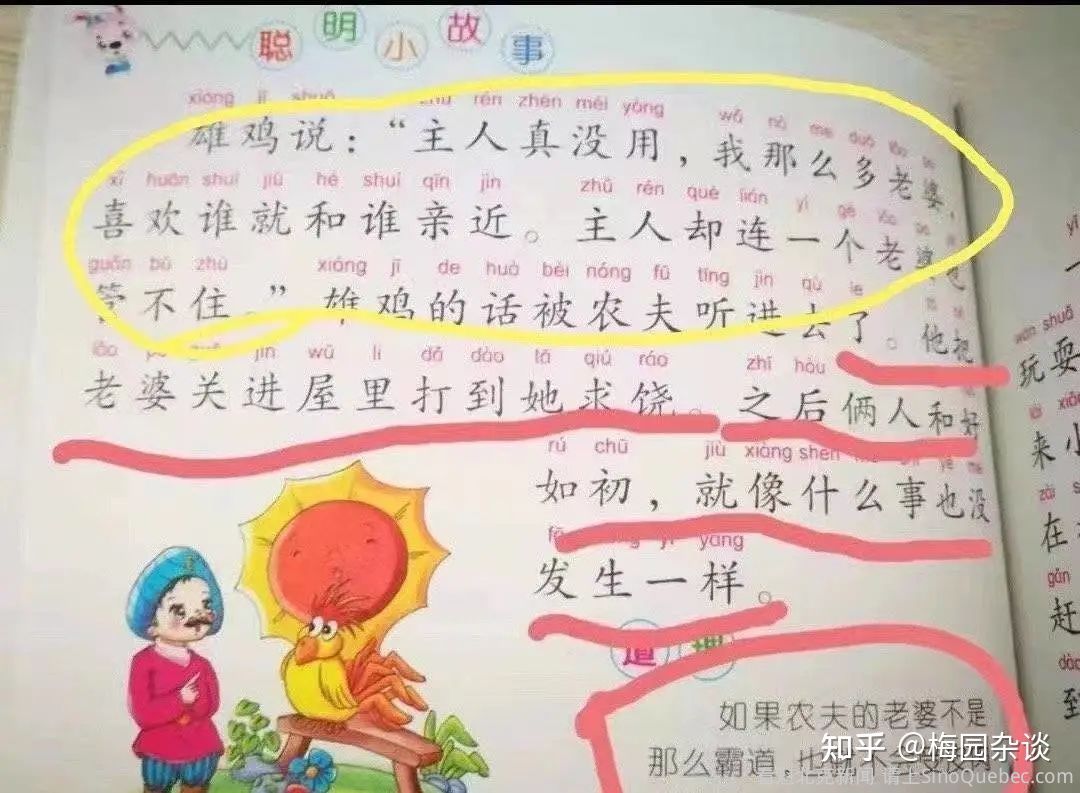 聪明小故事
xióng jī shuō zhǔ rén zhēn méi yòng wǒ nà me duō lǎo
雄鸡说：“主人真没用，我那么多老婆，
xǐ huān shuí jiù hé shuí qīn jìn zhǔ rén què lián yí gè lǎo
喜欢谁就和谁亲近。主人却连一个老婆
guǎn bú zhù xióng jī de huà bèi nóng fū tīng jìn qù le
管不住。”雄鸡的话被农夫听进去了。他把
lǎo guān jìn wū lǐ dǎ dào tā qiú ráo zhī hòu
老婆关进屋里打到她求饶。之后俩人和好
rú chū jiù xiàng shén
如初，就像什么事也没
yī yàng
发生一样。
道理
如果农夫的老婆不是
那么霸道，也
yī
wán shuǎ
玩耍
lái xiǎo
来小
zài
在
gǎn
赶
dào
到
知乎 @梅园杂谈
SinoQuebec.com